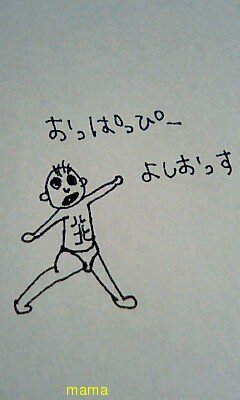 おっぱっぴー
よしおっす
mama